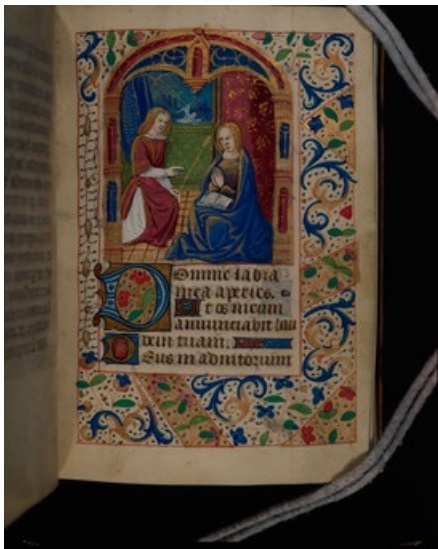 Domine labia
mea aperies.
Et os meum
annunciabit lau
dem tuam.
Deus in adiutorium